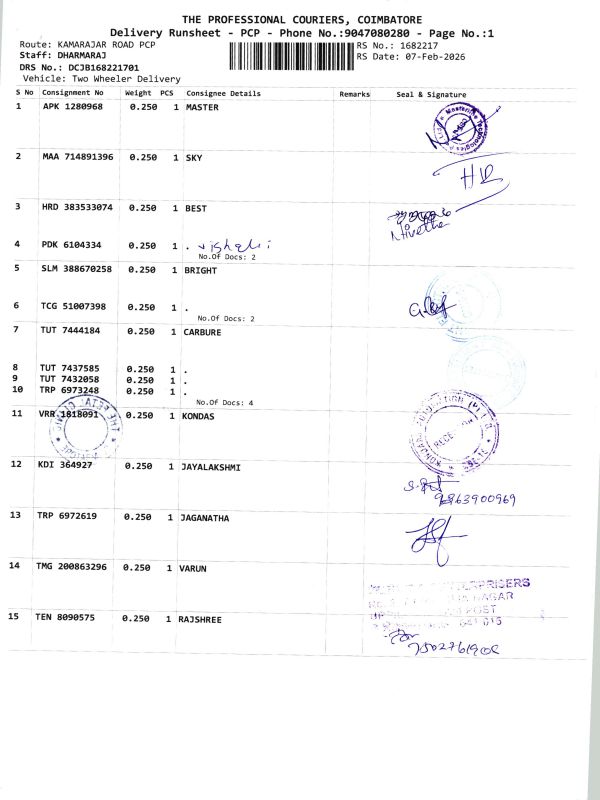 THE PROFESSIONAL COURIERS, COIMBATORE
Delivery Runsheet - PCP - Phone No.:9047080280 - Page No.:1
Route: KAMARAJAR ROAD PCP RS No.: 1682217
Staff: DHARMARAJ RS Date: 07-Feb-2026
DRS No.: DCJB168221701
Vehicle: Two Wheeler Delivery
S No Consignment No Weight PCS Consignee Details Remarks Seal & Signature
1 APK 1280968 0.250 1 MASTER
2 MAA 714891396 0.250 1 SKY
3 HRD 383533074 0.250 1 BEST
Nivetha
4 PDK 6104334 0.250 1 .
No.Of Docs: 2
5 SLM 388670258 0.250 1 BRIGHT
6 TCG 51007398 0.250 1 .
No.Of Docs: 2
7 TUT 7444184 0.250 1 CARBURE
8 TUT 7437585 0.250 1 .
9 TUT 7432058 0.250 1 .
10 TRP 6973248 0.250 1 .
No.Of Docs: 4
11 VRR 1818091 0.250 1 KONDAS
12 KDI 364927 0.250 1 JAYALAKSHMI
9863900969
13 TRP 6972619 0.250 1 JAGANATHA
14 TMG 200863296 0.250 1 VARUN
NAGAR
POST
15 TEN 8090575 0.250 1 RAJSHREE